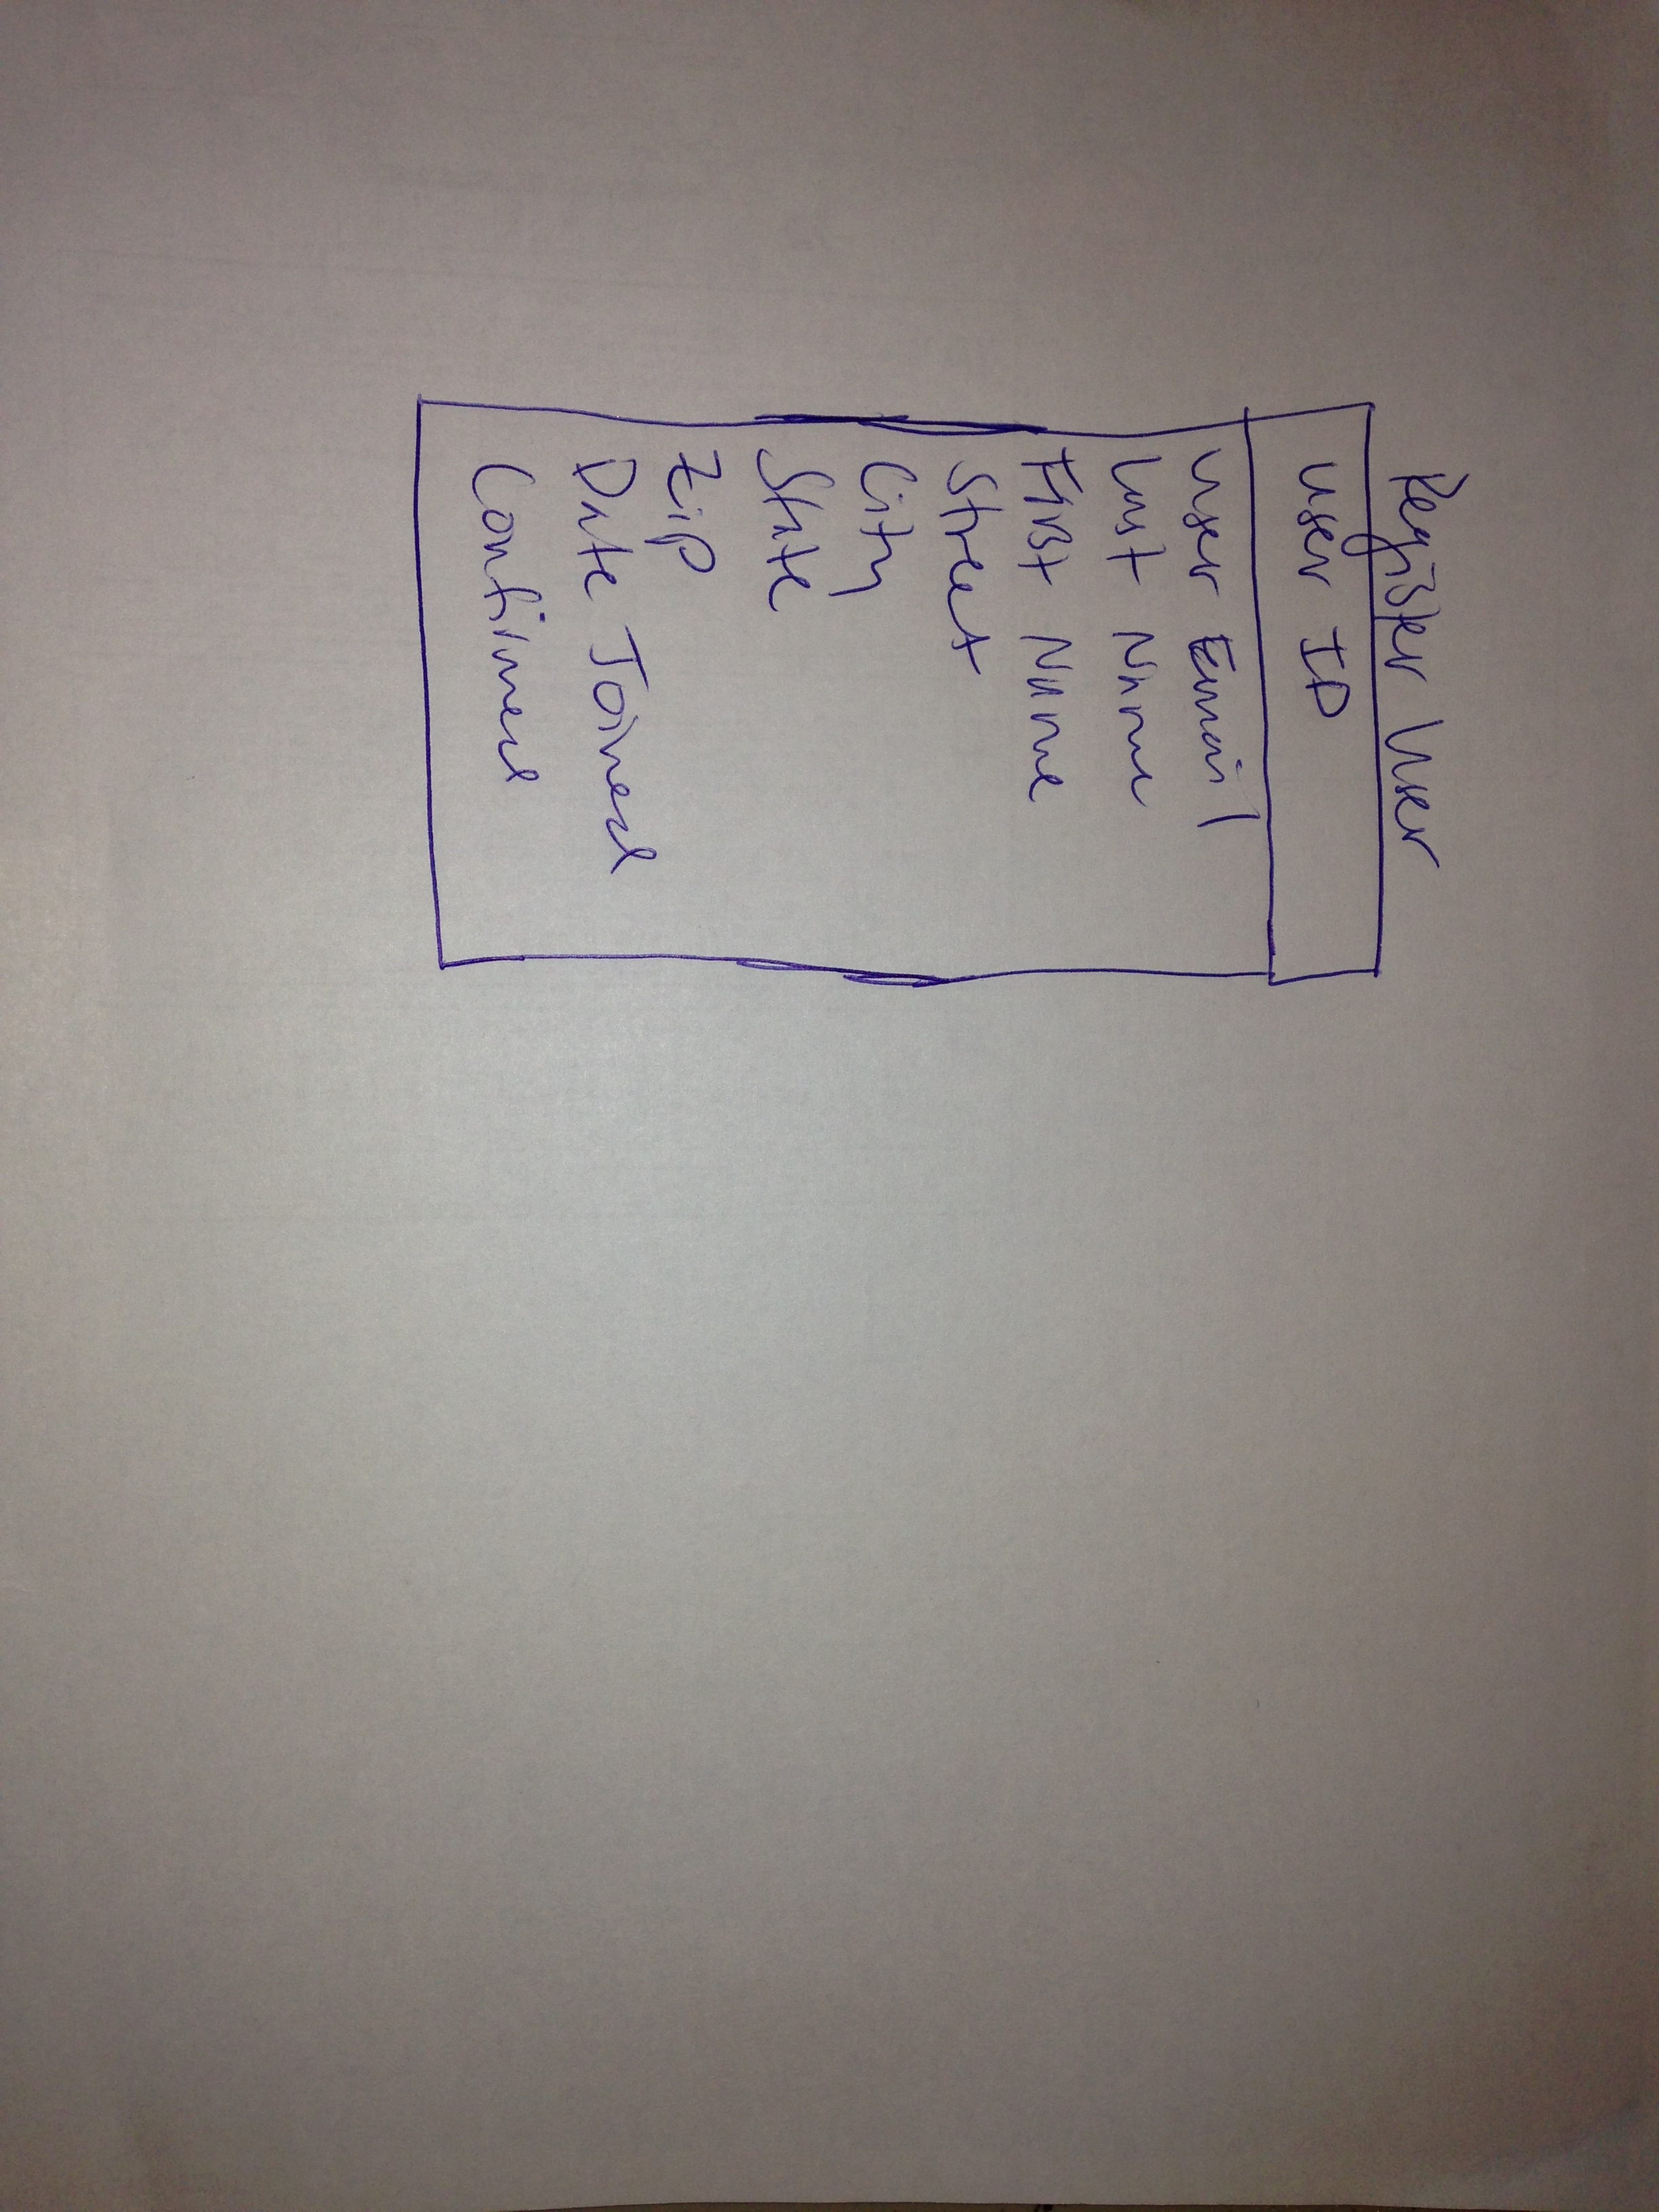 Register User
User ID
User Email
Last Name
First Name
Street
City
State
Zip
Date Joined
Confirmed